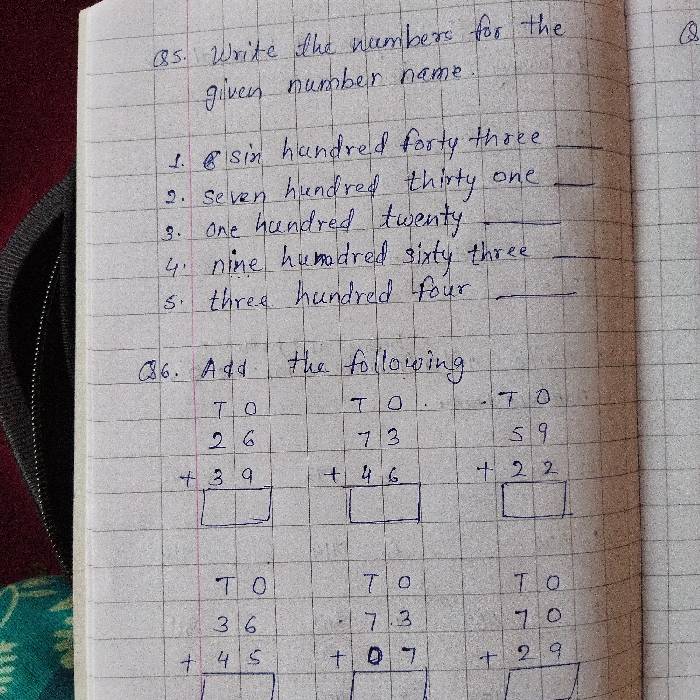 Q5. Write the numbers for the
given number name.
1. sin hundred forty three ___
2. seven hundred thirty one ___
3. one hundred twenty ___
4. nine hundred sixty three ___
5. three hundred four ___
Q6. Add the following
T O T O T O
2 6 7 3 5 9
+ 3 9 + 4 6 + 2 2
T O T O T O
3 6 7 3 7 0
+ 4 5 + 0 7 + 2 9
Q